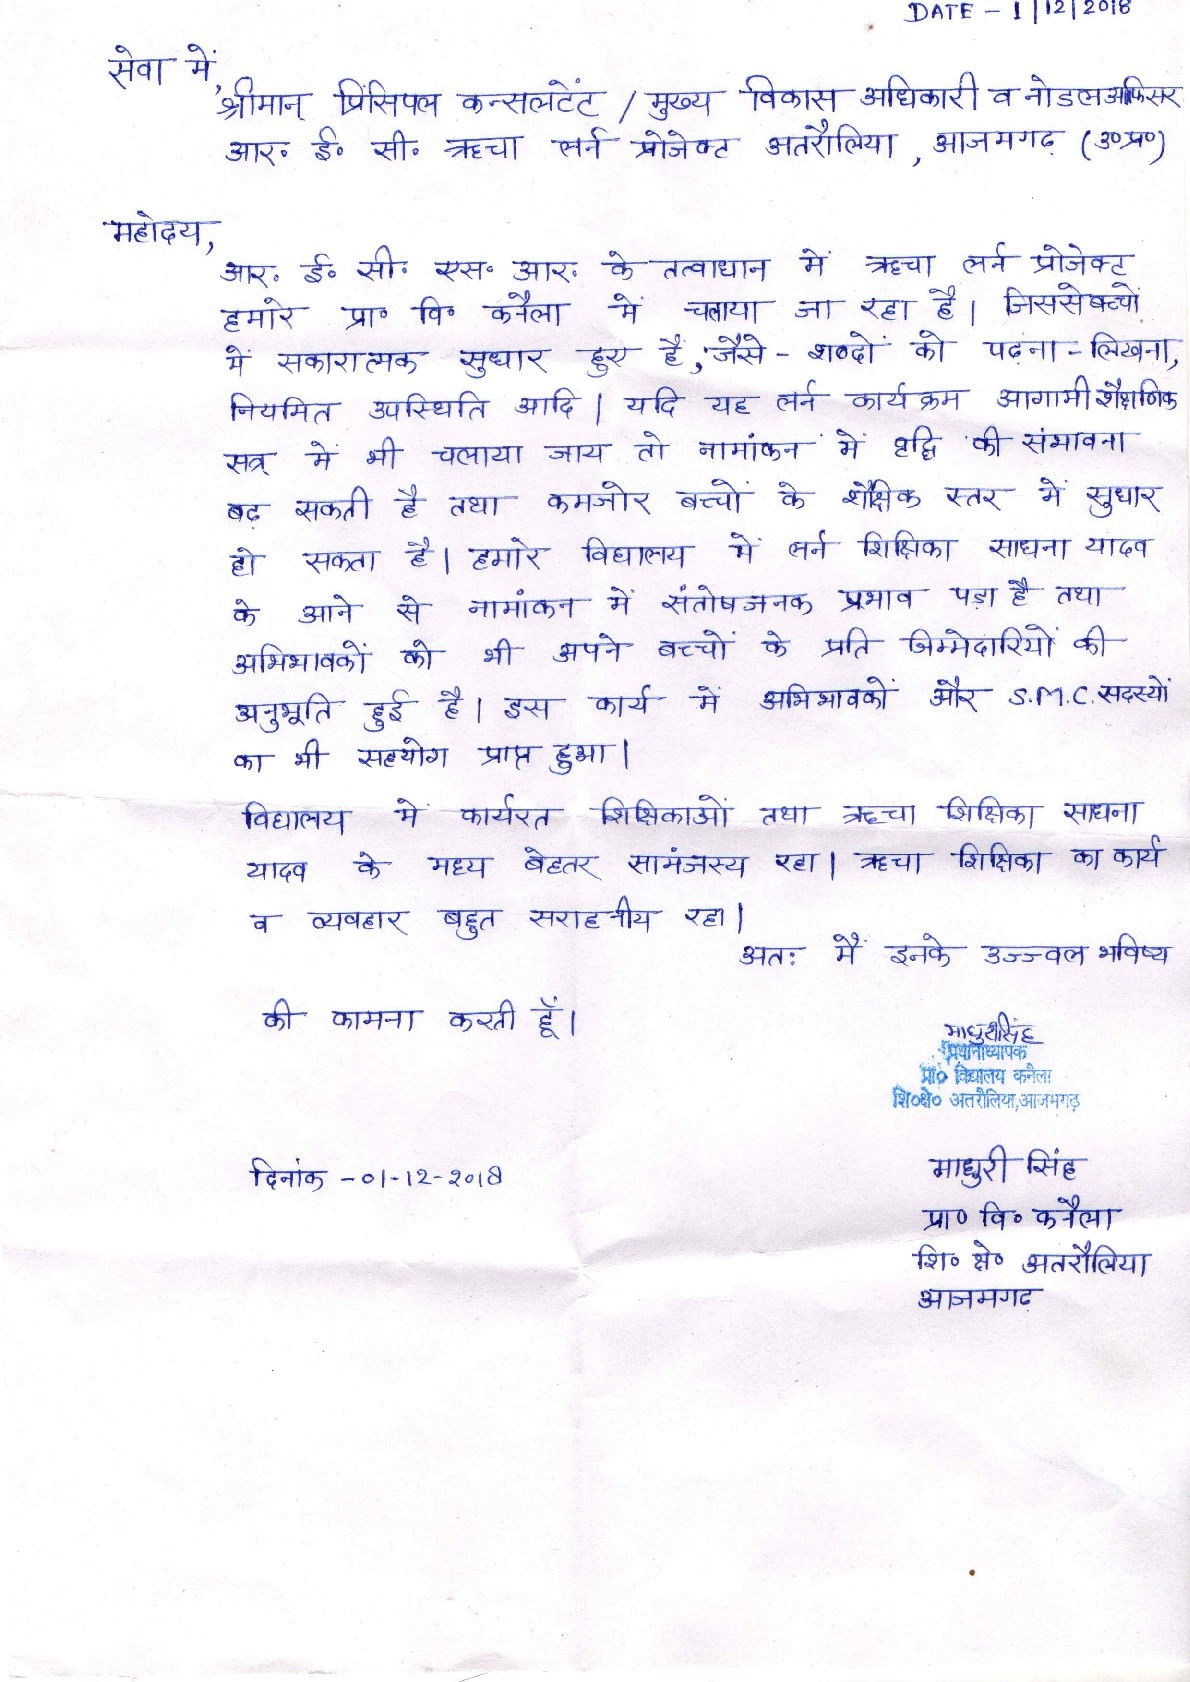 DATE - 1/12/2018
सेवा में,
श्रीमान् प्रिंसिपल कन्सलटेंट / मुख्य विकास अधिकारी व नोडल आफिसर
आर॰ ई॰ सी॰ ऋचा लर्न प्रोजेक्ट अतरौलिया, आजमगढ़ (उ॰प्र॰)
महोदय,
आर॰ ई॰ सी॰ एस॰ आर॰ के तत्वाधान में ऋचा लर्न प्रोजेक्ट
हमारे प्रा॰ वि॰ कनैला में चलाया जा रहा है। जिससे बच्चों
में सकारात्मक सुधार हुए हैं, जैसे - शब्दों को पढ़ना - लिखना,
नियमित उपस्थिति आदि। यदि यह लर्न कार्यक्रम आगामी शैक्षणिक
सत्र में भी चलाया जाय तो नामांकन में वृद्धि की संभावना
बढ़ सकती है तथा कमजोर बच्चों के शैक्षिक स्तर में सुधार
हो सकता है। हमारे विद्यालय में लर्न शिक्षिका साधना यादव
के आने से नामांकन में संतोषजनक प्रभाव पड़ा है तथा
अभिभावकों को भी अपने बच्चों के प्रति जिम्मेदारियों की
अनुभूति हुई है। इस कार्य में अभिभावकों और S.M.C. सदस्यों
का भी सहयोग प्राप्त हुआ।
विद्यालय में कार्यरत शिक्षिकाओं तथा ऋचा शिक्षिका साधना
यादव के मध्य बेहतर सामंजस्य रहा। ऋचा शिक्षिका का कार्य
व व्यवहार बहुत सराहनीय रहा।
अतः मैं इनके उज्ज्वल भविष्य
की कामना करती हूँ।
माधुरी सिंह
प्रधानाध्यापक
प्रा० विद्यालय कनैला
शि०क्षे० अतरौलिया, आजमगढ़
दिनांक - 01-12-2018
माधुरी सिंह
प्रा॰ वि॰ कनैला
शि॰ क्षे॰ अतरौलिया
आजमगढ़